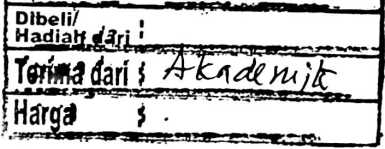 Dibeli/
Hadiah dari :
Terima dari : Akademik
Harga : .